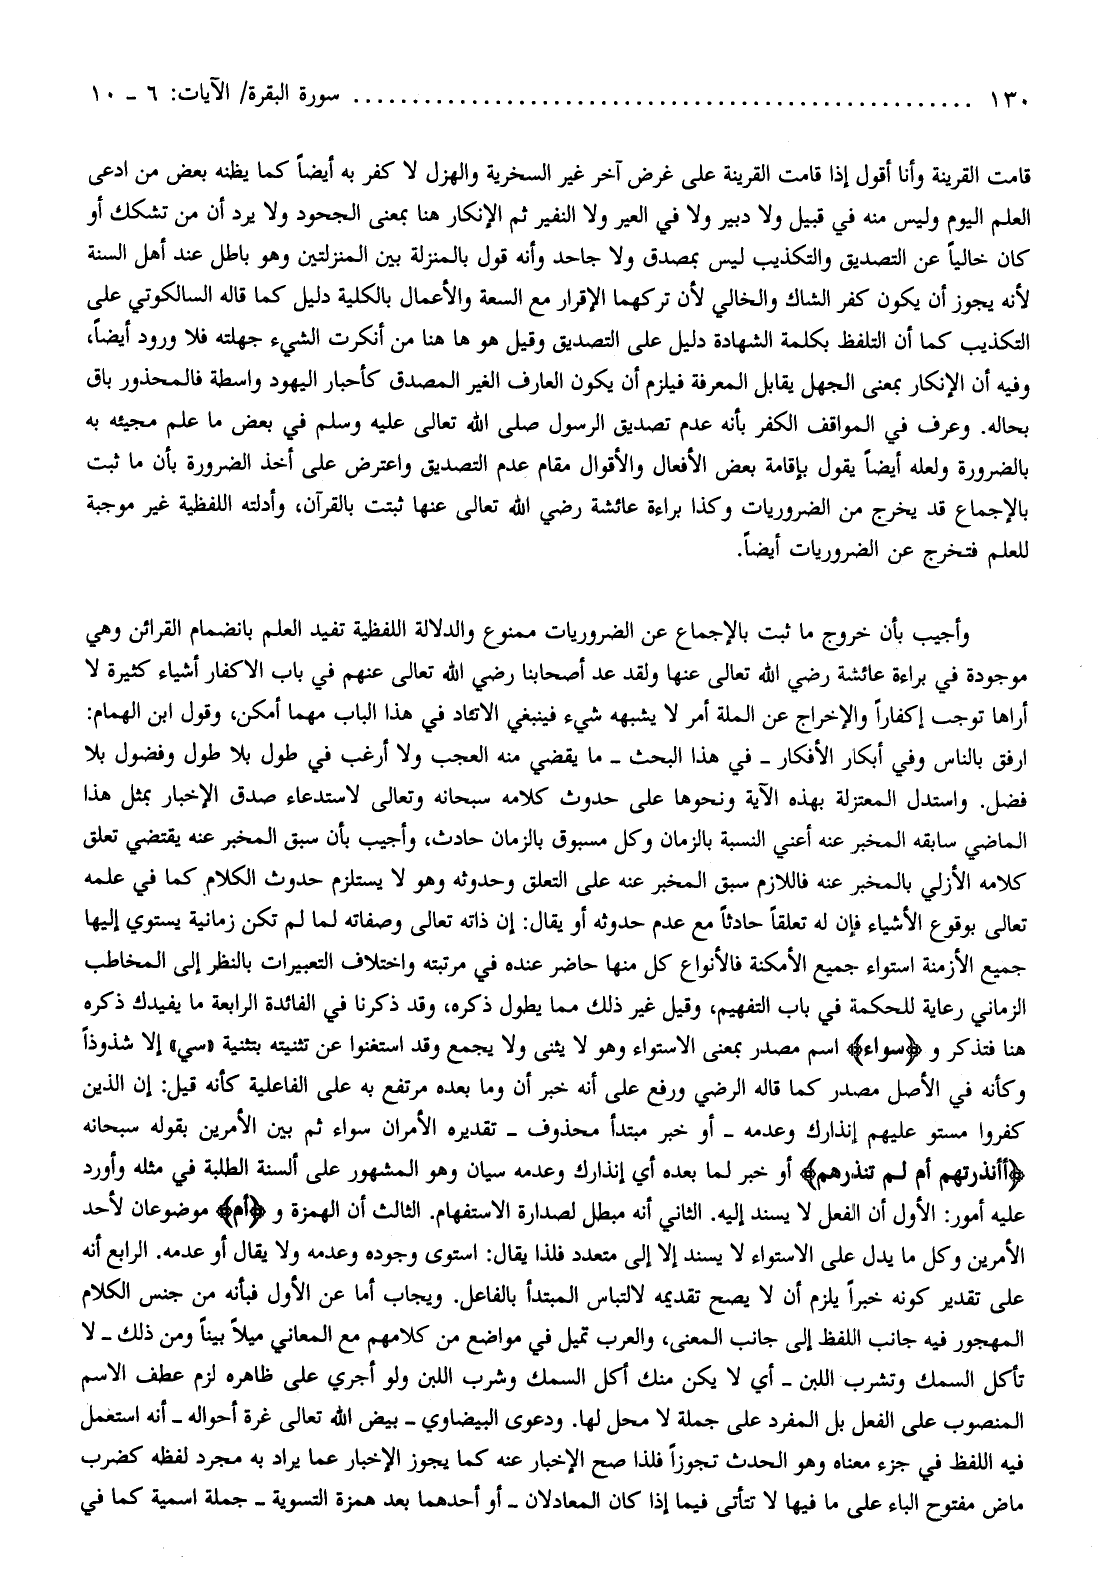 ١٣٠ .................................................... سورة البقرة/ الآيات: ٦ ـ ١٠
قامت القرينة وأنا أقول إذا قامت القرينة على غرض آخر غير السخرية والهزل لا كفر به أيضاً كما يظنه بعض من ادعى
العلم اليوم وليس منه في قبيل ولا دبير ولا في العير ولا النفير ثم الإنكار هنا بمعنى الجحود ولا يرد أن من تشكك أو
كان خالياً عن التصديق والتكذيب ليس بمصدق ولا جاحد وأنه قول بالمنزلة بين المنزلتين وهو باطل عند أهل السنة
لأنه يجوز أن يكون كفر الشاك والخالي لأن تركهما الإقرار مع السعة والأعمال بالكلية دليل كما قاله السالكوتي على
التكذيب كما أن التلفظ بكلمة الشهادة دليل على التصديق وقيل هو ها هنا من أنكرت الشيء جهلته فلا ورود أيضاً،
وفيه أن الإنكار بمعنى الجهل يقابل المعرفة فيلزم أن يكون العارف الغير المصدق كأحبار اليهود واسطة فالمحذور باق
بحاله. وعرف في المواقف الكفر بأنه عدم تصديق الرسول صلى الله تعالى عليه وسلم في بعض ما علم مجيئه به
بالضرورة ولعله أيضاً يقول بإقامة بعض الأفعال والأقوال مقام عدم التصديق واعترض على أخذ الضرورة بأن ما ثبت
بالإجماع قد يخرج من الضروريات وكذا براءة عائشة رضي الله تعالى عنها ثبتت بالقرآن، وأدلته اللفظية غير موجبة
للعلم فتخرج عن الضروريات أيضاً.
وأجيب بأن خروج ما ثبت بالإجماع عن الضروريات ممنوع والدلالة اللفظية تفيد العلم بانضمام القرائن وهي
موجودة في براءة عائشة رضي الله تعالى عنها ولقد عد أصحابنا رضي الله تعالى عنهم في باب الاكفار أشياء كثيرة لا
أراها توجب إكفاراً والإخراج عن الملة أمر لا يشبهه شيء فينبغي الاتئاد في هذا الباب مهما أمكن، وقول ابن الهمام:
ارفق بالناس وفي أبكار الأفكار ـ في هذا البحث ـ ما يقضي منه العجب ولا أرغب في طول بلا طول وفضول بلا
فضل. واستدل المعتزلة بهذه الآية ونحوها على حدوث كلامه سبحانه وتعالى لاستدعاء صدق الإخبار بمثل هذا
الماضي سابقه المخبر عنه أعني النسبة بالزمان وكل مسبوق بالزمان حادث، وأجيب بأن سبق المخبر عنه يقتضي تعلق
كلامه الأزلي بالمخبر عنه فاللازم سبق المخبر عنه على التعلق وحدوثه وهو لا يستلزم حدوث الكلام كما في علمه
تعالى بوقوع الأشياء فإن له تعلقاً حادثاً مع عدم حدوثه أو يقال: إن ذاته تعالى وصفاته لما لم تكن زمانية يستوي إليها
جميع الأزمنة استواء جميع الأمكنة فالأنواع كل منها حاضر عنده في مرتبته واختلاف التعبيرات بالنظر إلى المخاطب
الزماني رعاية للحكمة في باب التفهيم، وقيل غير ذلك مما يطول ذكره، وقد ذكرنا في الفائدة الرابعة ما يفيدك ذكره
هنا فتذكر و ﴿سواء﴾ اسم مصدر بمعنى الاستواء وهو لا يثنى ولا يجمع وقد استغنوا عن تثنيته بتثنية «سي» إلا شذوذاً
وكأنه في الأصل مصدر كما قاله الرضي ورفع على أنه خبر أن وما بعده مرتفع به على الفاعلية كأنه قيل: إن الذين
كفروا مستو عليهم إنذارك وعدمه ـ أو خبر مبتدأ محذوف ـ تقديره الأمران سواء ثم بين الأمرين بقوله سبحانه
﴿أأنذرتهم أم لم تنذرهم﴾ أو خبر لما بعده أي إنذارك وعدمه سيان وهو المشهور على ألسنة الطلبة في مثله وأورد
عليه أمور: الأول أن الفعل لا يسند إليه. الثاني أنه مبطل لصدارة الاستفهام. الثالث أن الهمزة و ﴿أم﴾ موضوعان لأحد
الأمرين وكل ما يدل على الاستواء لا يسند إلا إلى متعدد فلذا يقال: استوى وجوده وعدمه ولا يقال أو عدمه. الرابع أنه
على تقدير كونه خبراً يلزم أن لا يصح تقديمه لالتباس المبتدأ بالفاعل. ويجاب أما عن الأول فبأنه من جنس الكلام
المهجور فيه جانب اللفظ إلى جانب المعنى، والعرب تميل في مواضع من كلامهم مع المعاني ميلاً بيناً ومن ذلك ـ لا
تأكل السمك وتشرب اللبن ـ أي لا يكن منك أكل السمك وشرب اللبن ولو أجري على ظاهره لزم عطف الاسم
المنصوب على الفعل بل المفرد على جملة لا محل لها. ودعوى البيضاوي ـ بيض الله تعالى غرة أحواله ـ أنه استعمل
فيه اللفظ في جزء معناه وهو الحدث تجوزاً فلذا صح الإخبار عنه كما يجوز الإخبار عما يراد به مجرد لفظه كضرب
ماض مفتوح الباء على ما فيها لا تتأتى فيما إذا كان المعادلان ـ أو أحدهما بعد همزة التسوية ـ جملة اسمية كما في